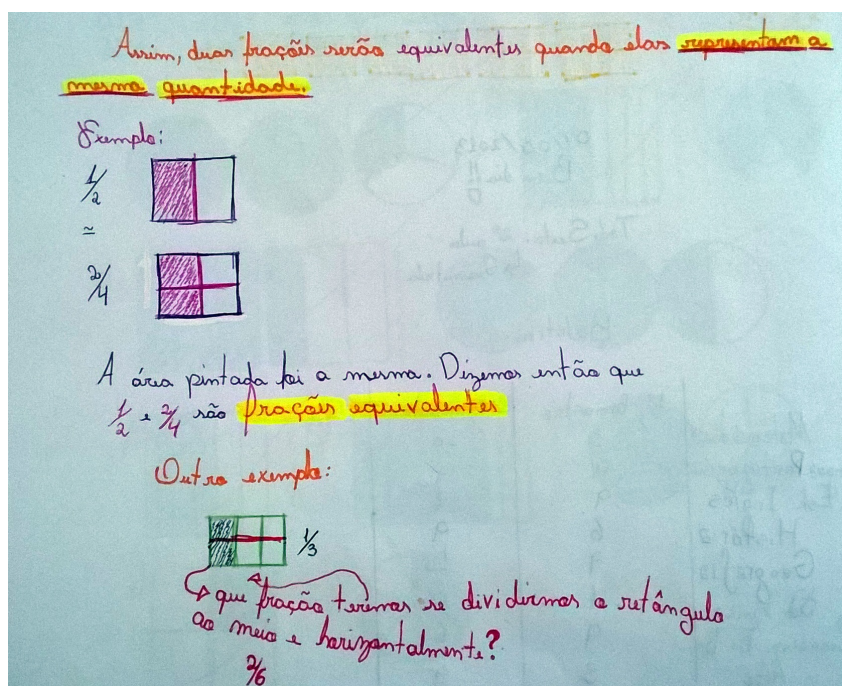 Assim, duas frações serão equivalentes quando elas representam a
mesma quantidade.
Exemplo:
1/2
≃
2/4
A área pintada foi a mesma. Dizemos então que
1/2 e 2/4 são frações equivalentes
Outro exemplo:
1/3
que fração teremos se dividirmos o retângulo
ao meio e horizontalmente?
2/6